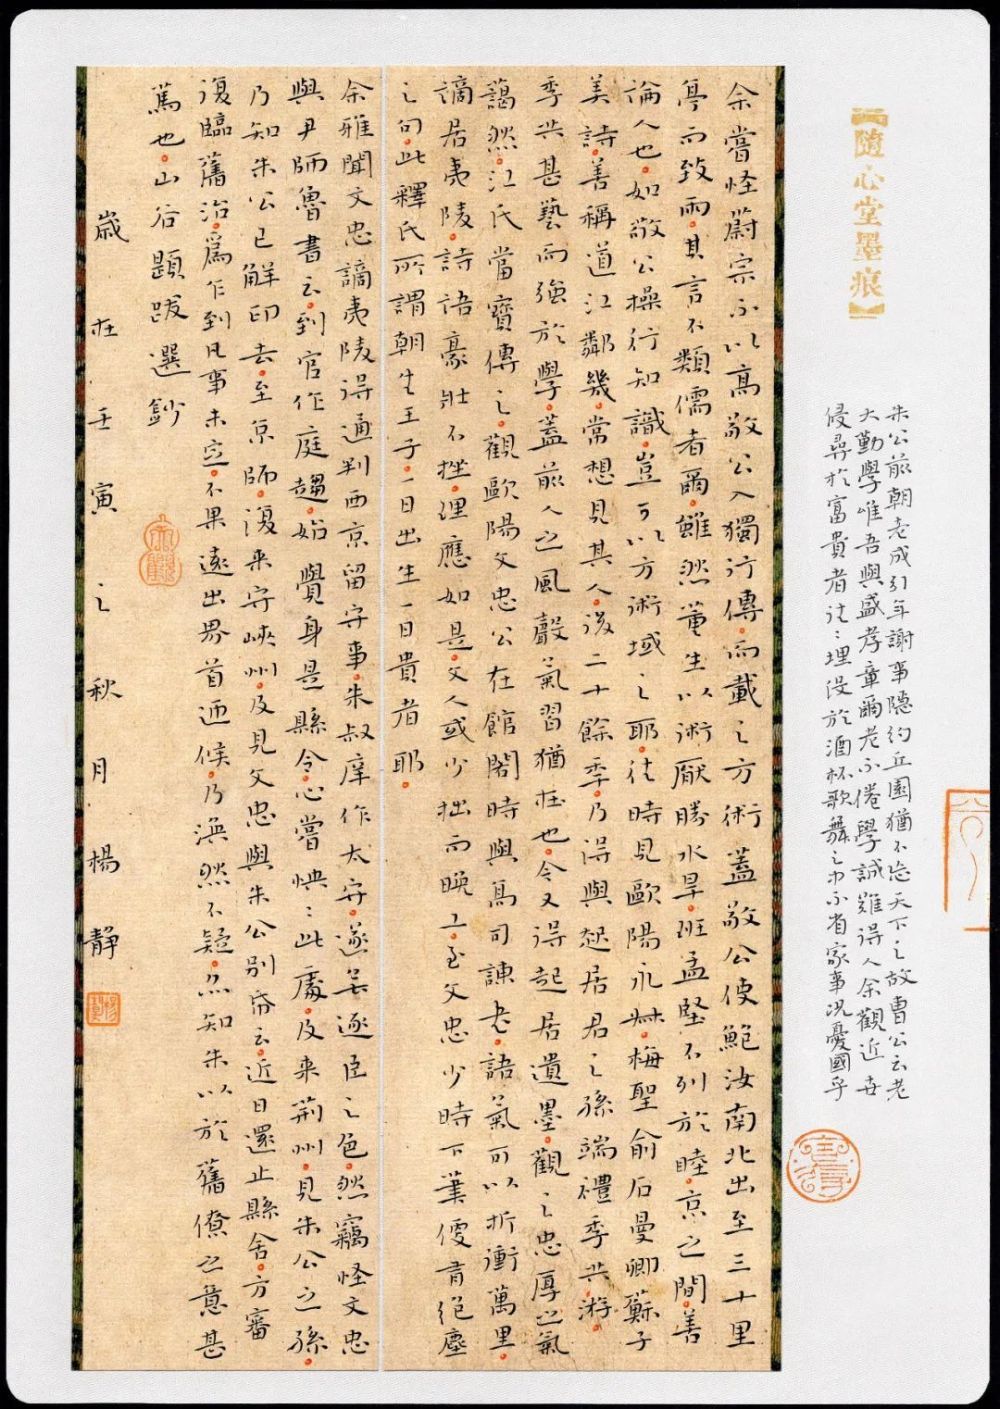 【隨心堂墨痕】
朱公前朝老成引年謝事隱約丘園猶不忘天下之故曹公云老
大勤學唯吾與盛孝章爾老不倦學誠難得人余觀近世
侵尋於富貴者往〻埋沒於酒杯歌舞之中不省家事況憂國乎
余嘗怪蔚宗不以高敬公入獨行傳而載之方術蓋敬公使鮑汝南北出至三十里
亭而致雨其言不類儒者爾雖然董生以術厭勝水旱班孟堅不列於眭京之間善
論人也如敬公操行知識豈可以方術域之耶往時見歐陽永叔梅聖俞石曼卿蘇子
美詩善稱道江鄰幾常想見其人後二十餘季乃得與起居君之孫端禮季共游
季共甚藝而強於學蓋前人之風聲氣習猶在也今又得起居遺墨觀之忠厚之氣
藹然江氏當寶傳之觀歐陽文忠公在館閣時與高司諫書語氣可以折衝萬里
謫居夷陵詩語豪壯不挫理應如是文人或少拙而晚工至文忠少時下筆便有絕塵
之句此釋氏所謂朝生王子一日出生一日貴者耶
余雅聞文忠謫夷陵得通判西京留守事朱叔庠作太守遂無逐臣之色然竊怪文忠
與尹師魯書云到官作庭趨始覺身是縣令心嘗怏〻此處及來荊州見朱公之孫
乃知朱公已解印去至京師復來守峽州及見文忠與朱公別帋云近日還止縣舍方審
復臨舊治為乍到凡事未定不果遠出界首迎候乃渙然不疑亦知朱以於舊僚之意甚
篤也山谷題跋選鈔
歲在壬寅之秋月楊靜